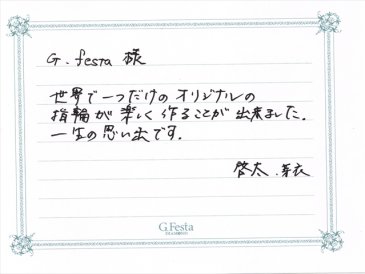 G.festa 様
世界で一つだけのオリジナルの
指輪が楽しく作ることが出来ました。
一生の思い出です。
啓太.芽衣
G.Festa